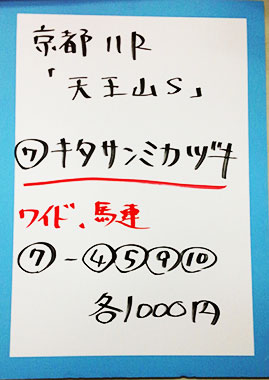 京都11R
「天王山S」
⑦キタサンミカヅキ
ワイド、馬連
⑦-④⑤⑨⑩
各1000円